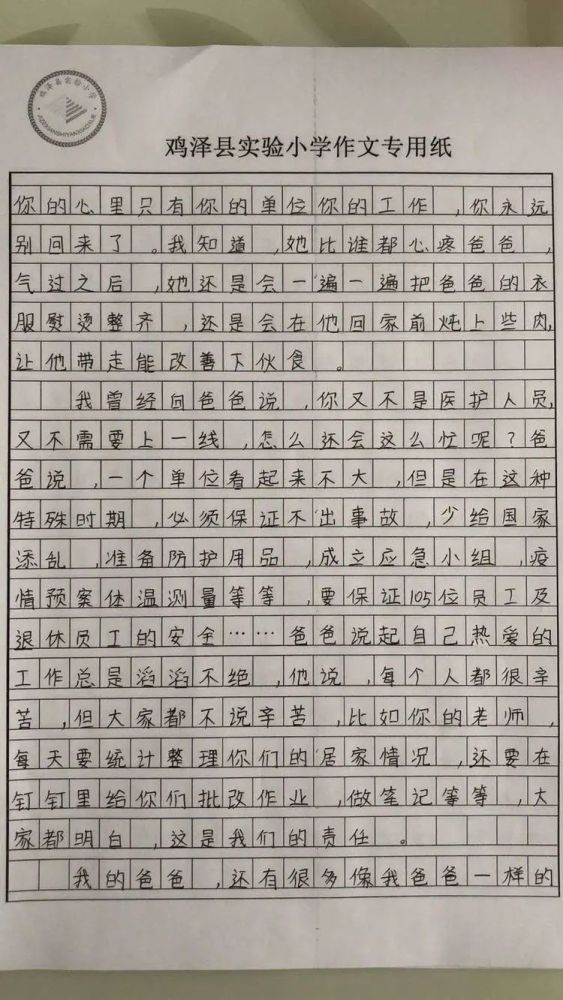 鸡泽县实验小学作文专用纸
你的心里只有你的单位你的工作，你永远
别回来了。我知道，她比谁都心疼爸爸，
气过之后，她还是会一遍一遍把爸爸的衣
服熨烫整齐，还是会在他回家前炖上些肉，
让他带走能改善下伙食。
我曾经向爸爸说，你又不是医护人员，
又不需要上一线，怎么还会这么忙呢？爸
爸说，一个单位看起来不大，但是在这种
特殊时期，必须保证不出事故，少给国家
添乱，准备防护用品，成立应急小组，疫
情预案体温测量等等，要保证105位员工及
退休员工的安全……爸爸说起自己热爱的
工作总是滔滔不绝，他说，每个人都很辛
苦，但大家都不说辛苦，比如你的老师，
每天要统计整理你们的居家情况，还要在
钉钉里给你们批改作业，做笔记等等，大
家都明白，这是我们的责任。
我的爸爸，还有很多像我爸爸一样的